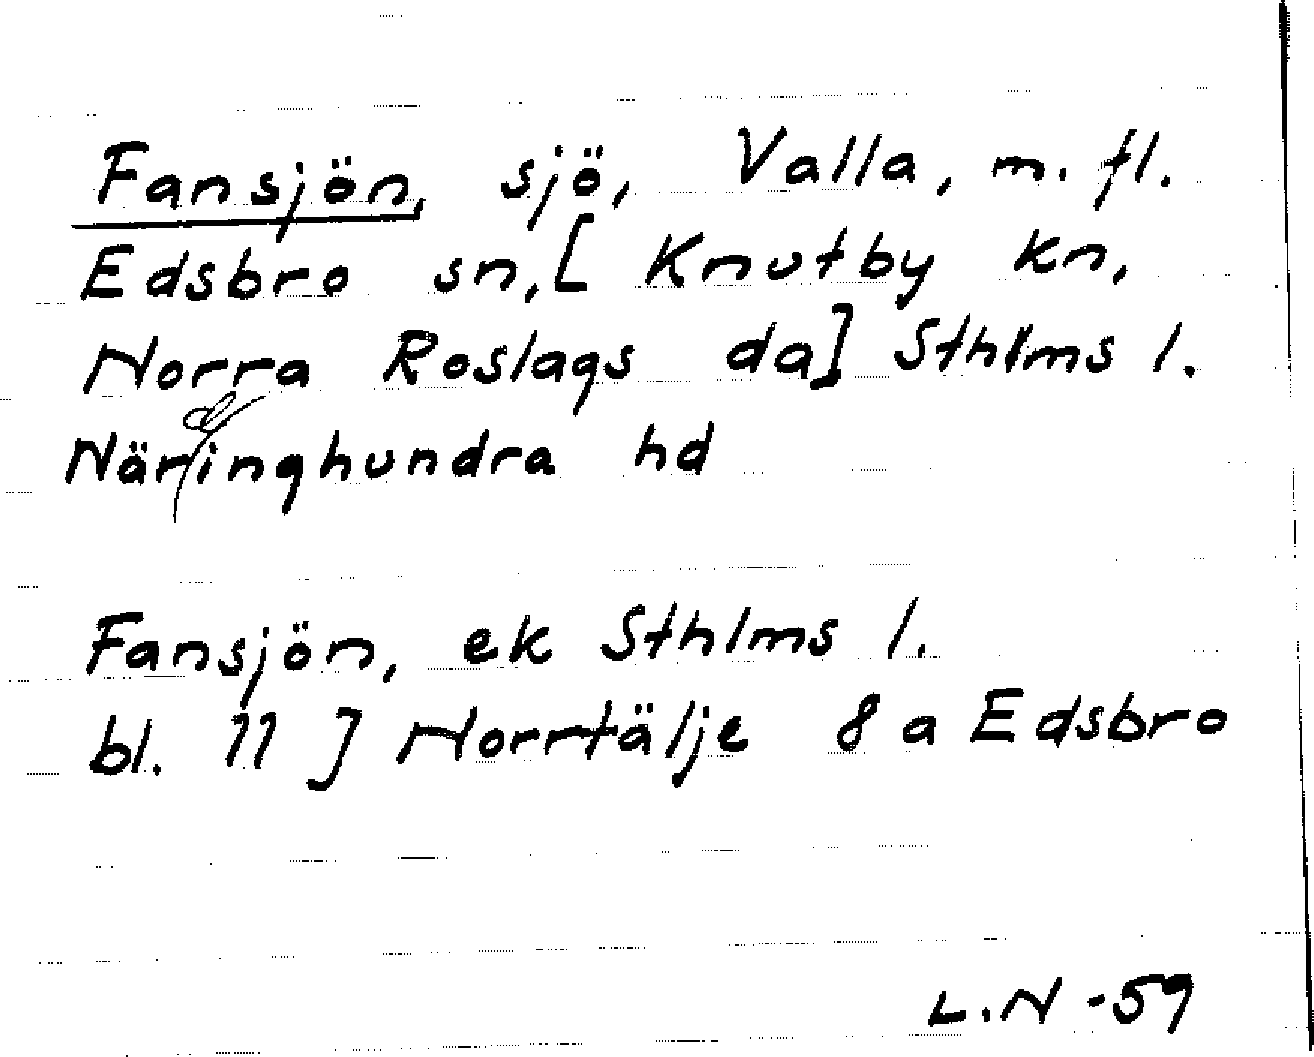 Fansjön, sjö, Valla, m. fl.
Edsbro sn, [ Knutby kn,
Norra Roslags da] Sthlms l.
Närdinghundra hd
Fansjön, ek Sthlms l.
bl. 11 J Norrtälje 8 a Edsbro
L.N -59